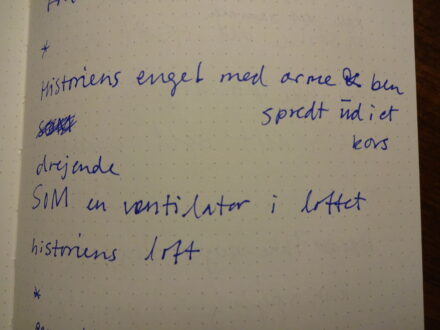 *
Historiens engel med arme & ben
spredt ud i et
kors
drejende
SOM en ventilator i loftet
historiens loft
*